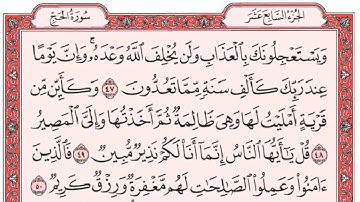 الجزء السابع عشر سورة الحج
وَيَسْتَعْجِلُونَكَ بِٱلْعَذَابِ وَلَن يُخْلِفَ ٱللَّهُ وَعْدَهُۥ ۚ وَإِنَّ يَوْمًا
عِندَ رَبِّكَ كَأَلْفِ سَنَةٍ مِّمَّا تَعُدُّونَ ٤٧ وَكَأَيِّن مِّن
قَرْيَةٍ أَمْلَيْتُ لَهَا وَهِىَ ظَالِمَةٌ ثُمَّ أَخَذْتُهَا وَإِلَىَّ ٱلْمَصِيرُ
٤٨ قُلْ يَٰٓأَيُّهَا ٱلنَّاسُ إِنَّمَآ أَنَا۠ لَكُمْ نَذِيرٌ مُّبِينٌ ٤٩ فَٱلَّذِينَ
ءَامَنُوا۟ وَعَمِلُوا۟ ٱلصَّٰلِحَٰتِ لَهُم مَّغْفِرَةٌ وَرِزْقٌ كَرِيمٌ ٥٠